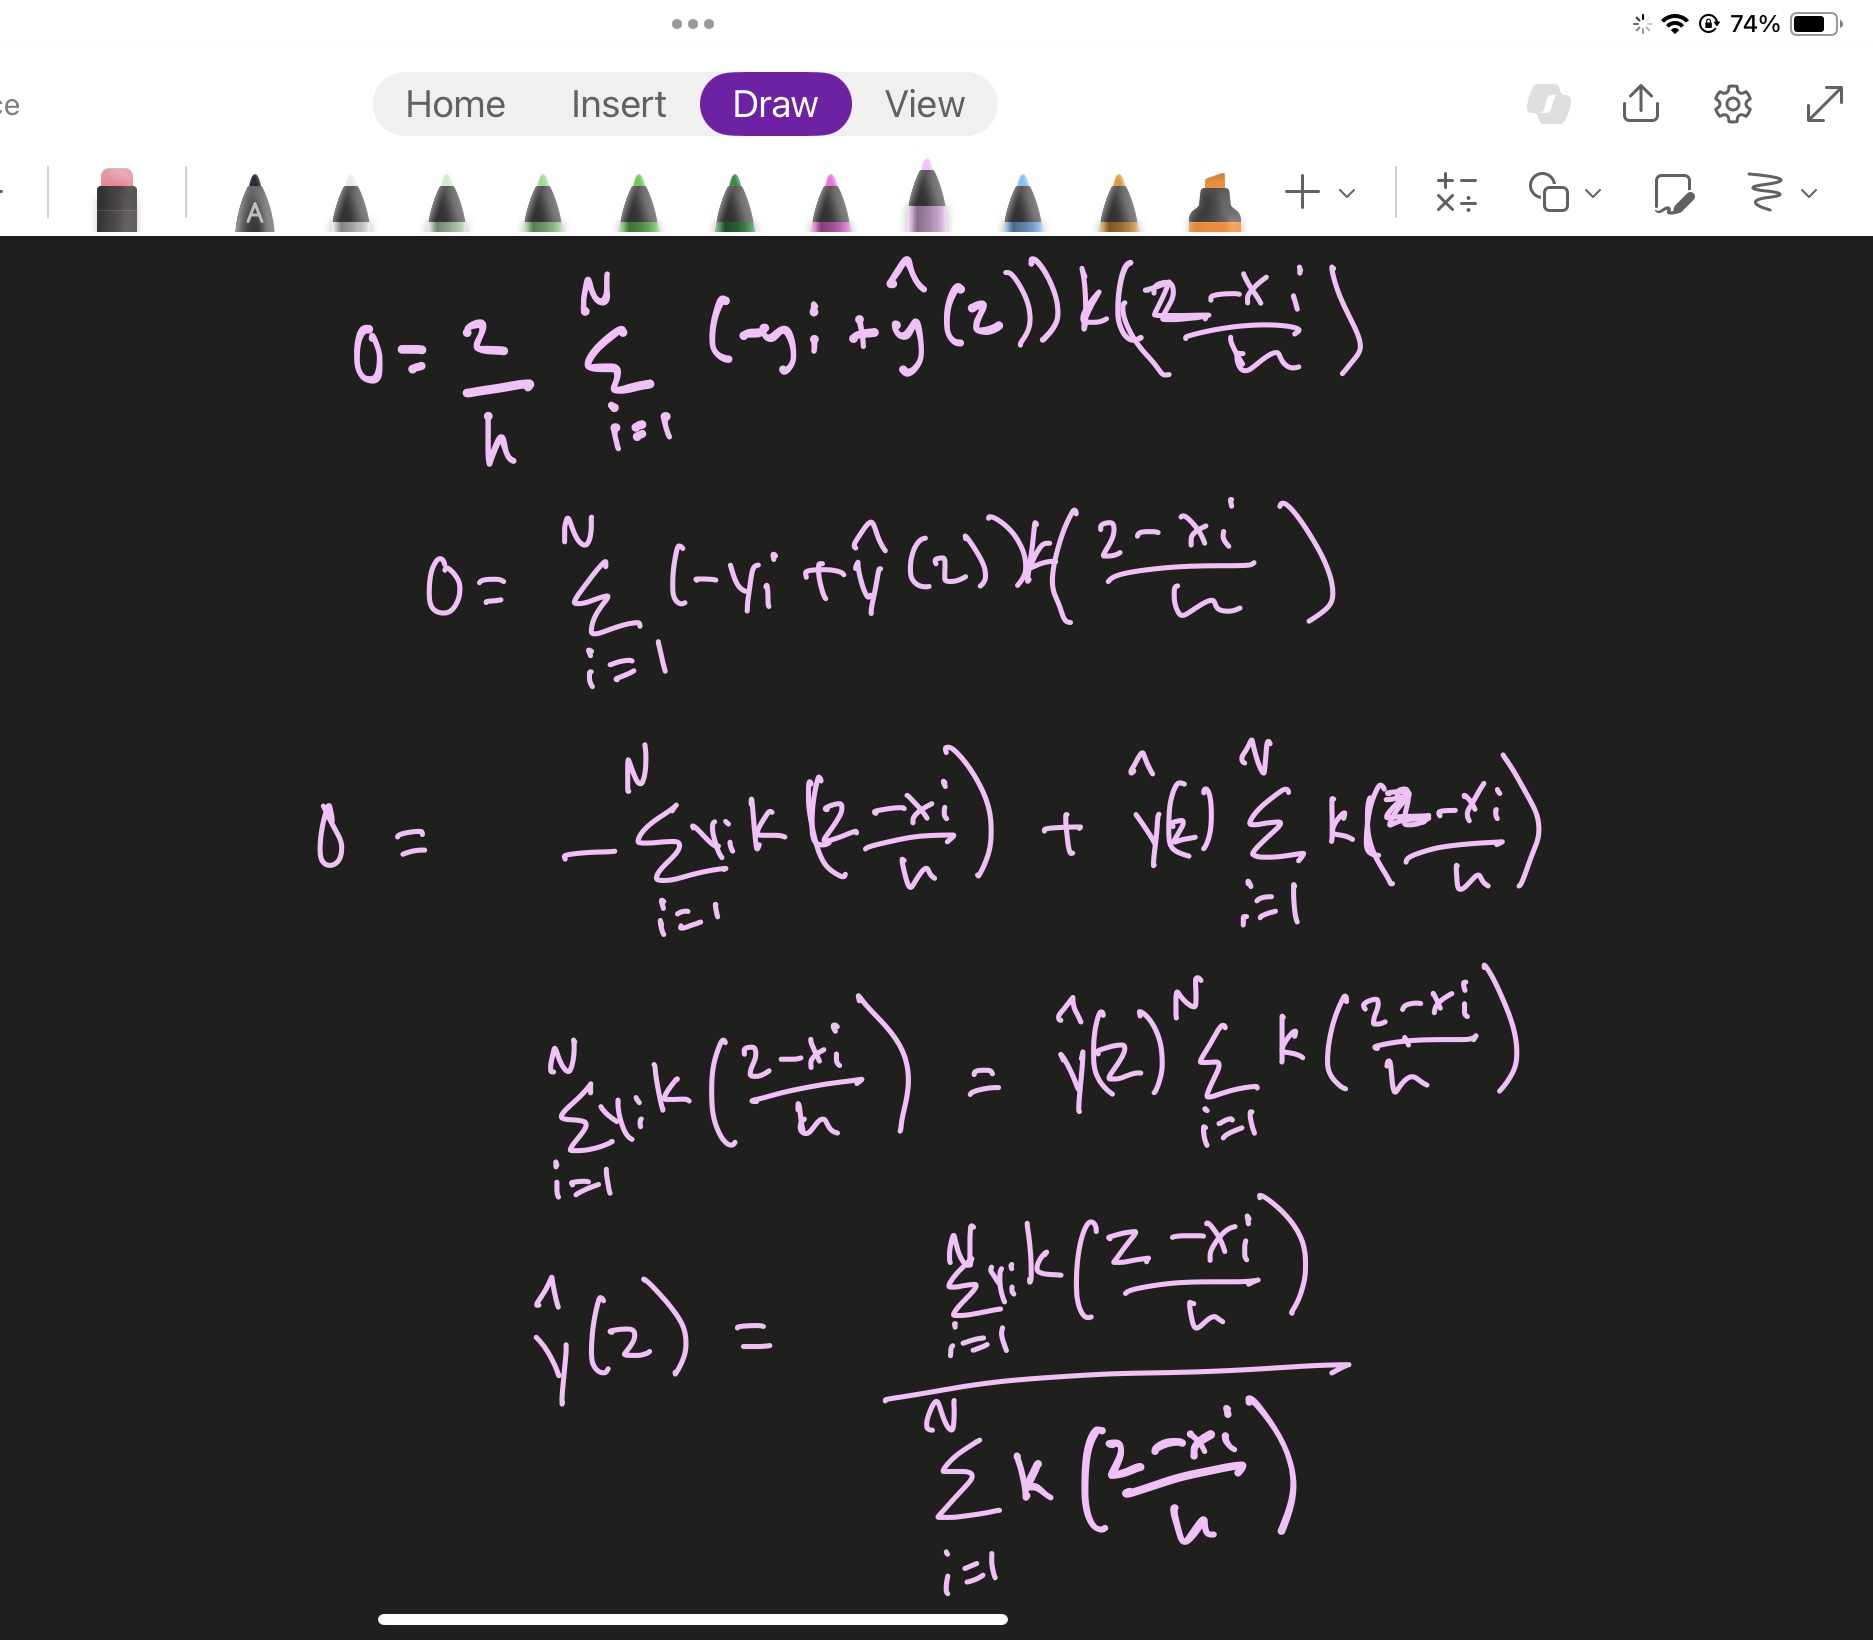 74%
ce
Home Insert Draw View
A
0 = 2/h Σ_{i=1}^{N} (-yi + ŷ(z)) k((z-xi)/h)
0 = Σ_{i=1}^{N} (-yi + ŷ(z)) k((z-xi)/h)
0 = - Σ_{i=1}^{N} yi k((z-xi)/h) + ŷ(z) Σ_{i=1}^{N} k((z-xi)/h)
Σ_{i=1}^{N} yi k((z-xi)/h) = ŷ(z) Σ_{i=1}^{N} k((z-xi)/h)
ŷ(z) = Σ_{i=1}^{N} yi k((z-xi)/h) / Σ_{i=1}^{N} k((z-xi)/h)